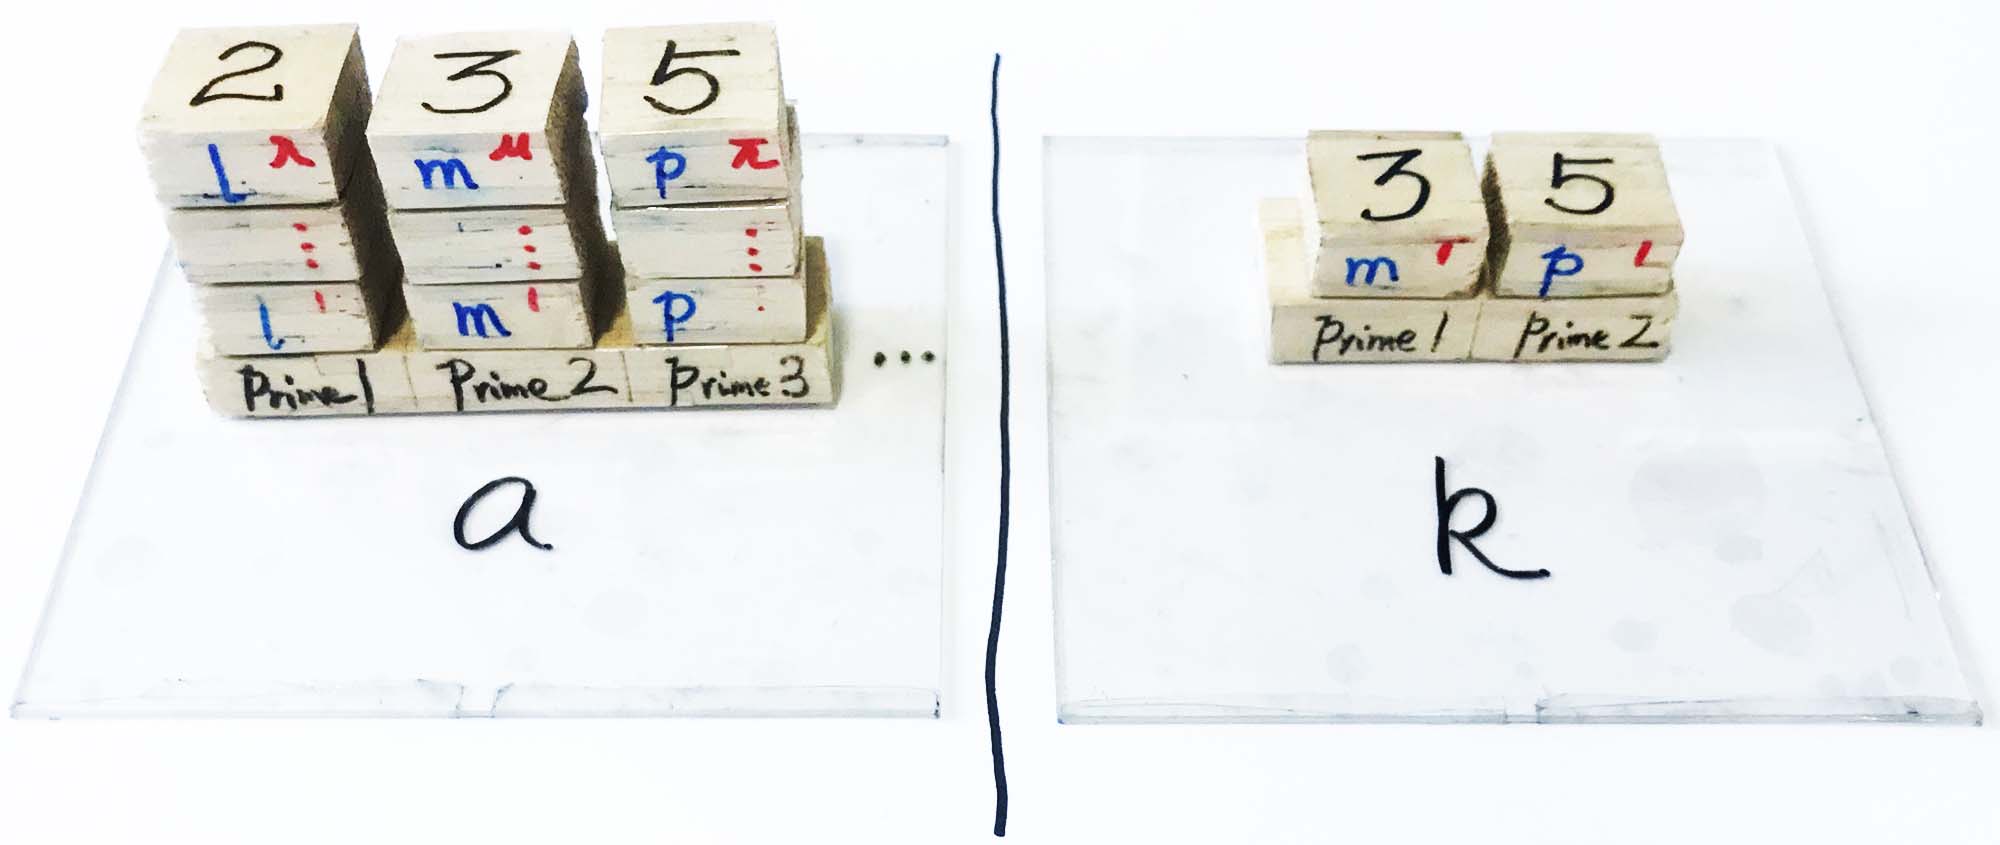 2 3 5
l λ m μ p π
⋮ ⋮ ⋮
l 1 m 1 p
Prime 1 Prime 2 Prime 3 ...
a
3 5
m 1 p 1
Prime 1 Prime 2
k